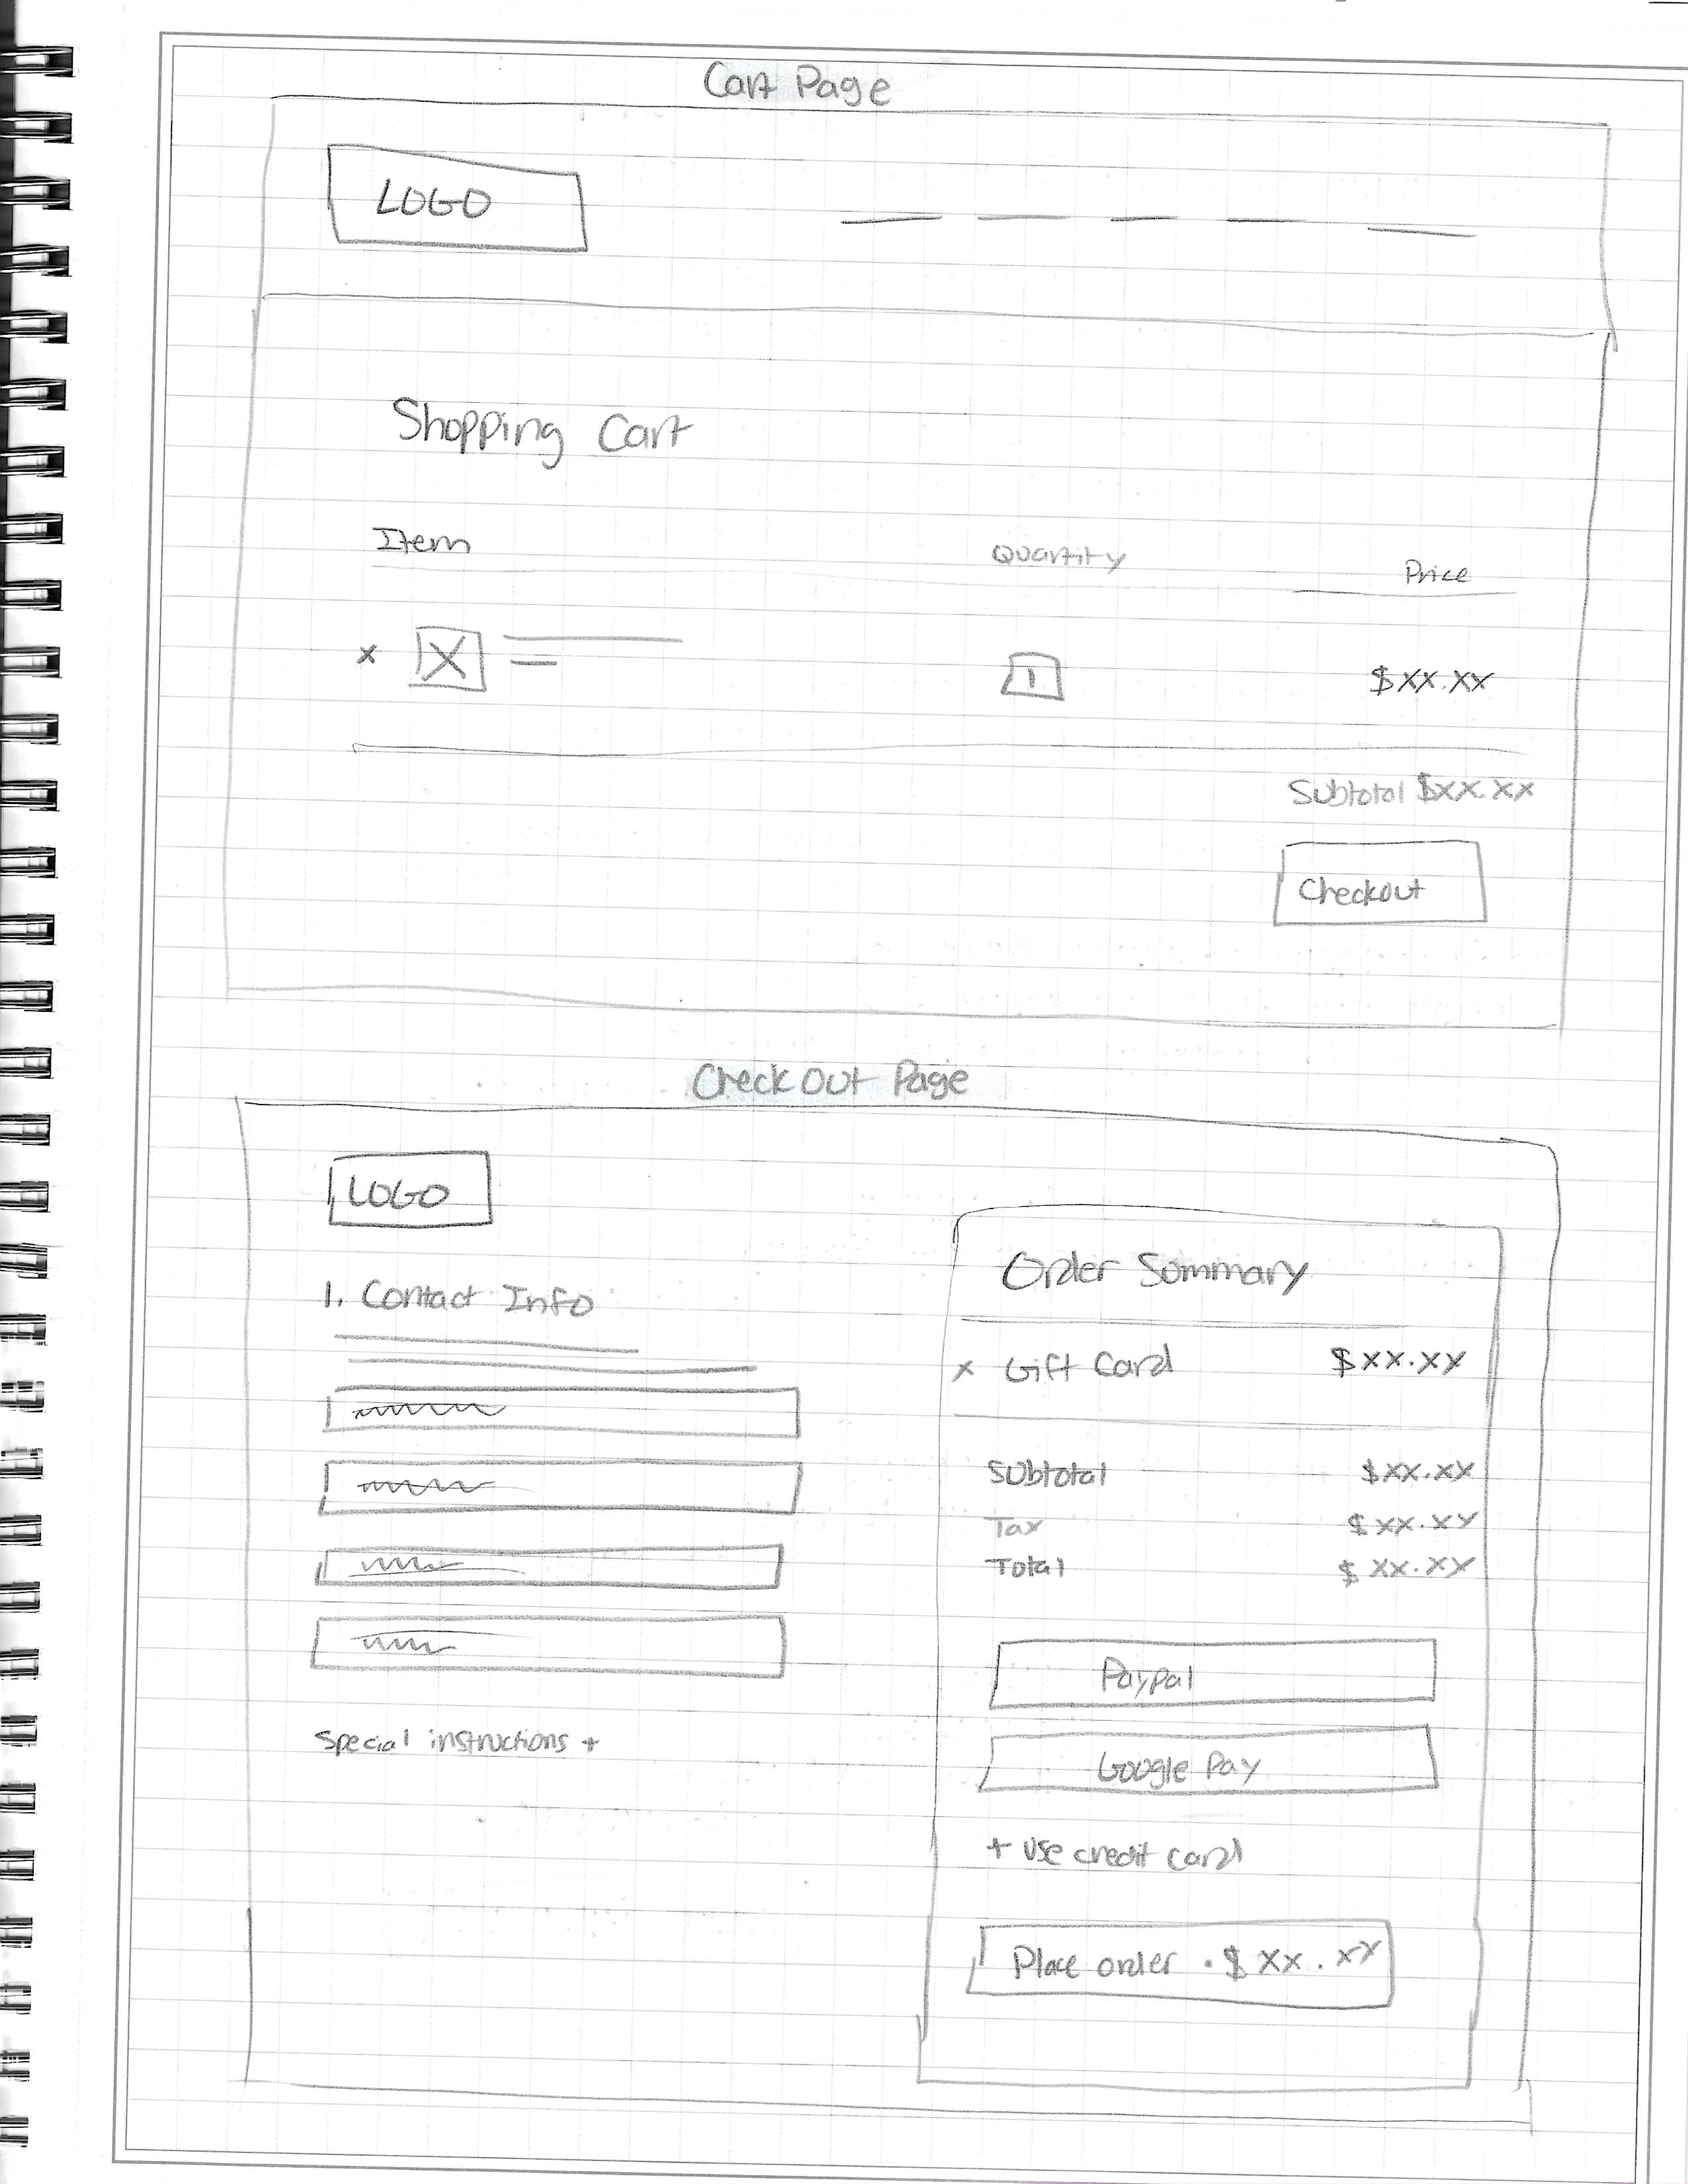 Cart Page
LOGO
Shopping Cart
Item Quantity Price
x X 1 $XX.XX
Subtotal $XX.XX
Checkout
Check Out Page
LOGO
Order Summary
1. Contact Info
x Gift Card $XX.XX
Subtotal $XX.XX
Tax $XX.XX
Total $XX.XX
Paypal
Special instructions +
Google Pay
+ Use credit card
Place order · $XX.XX